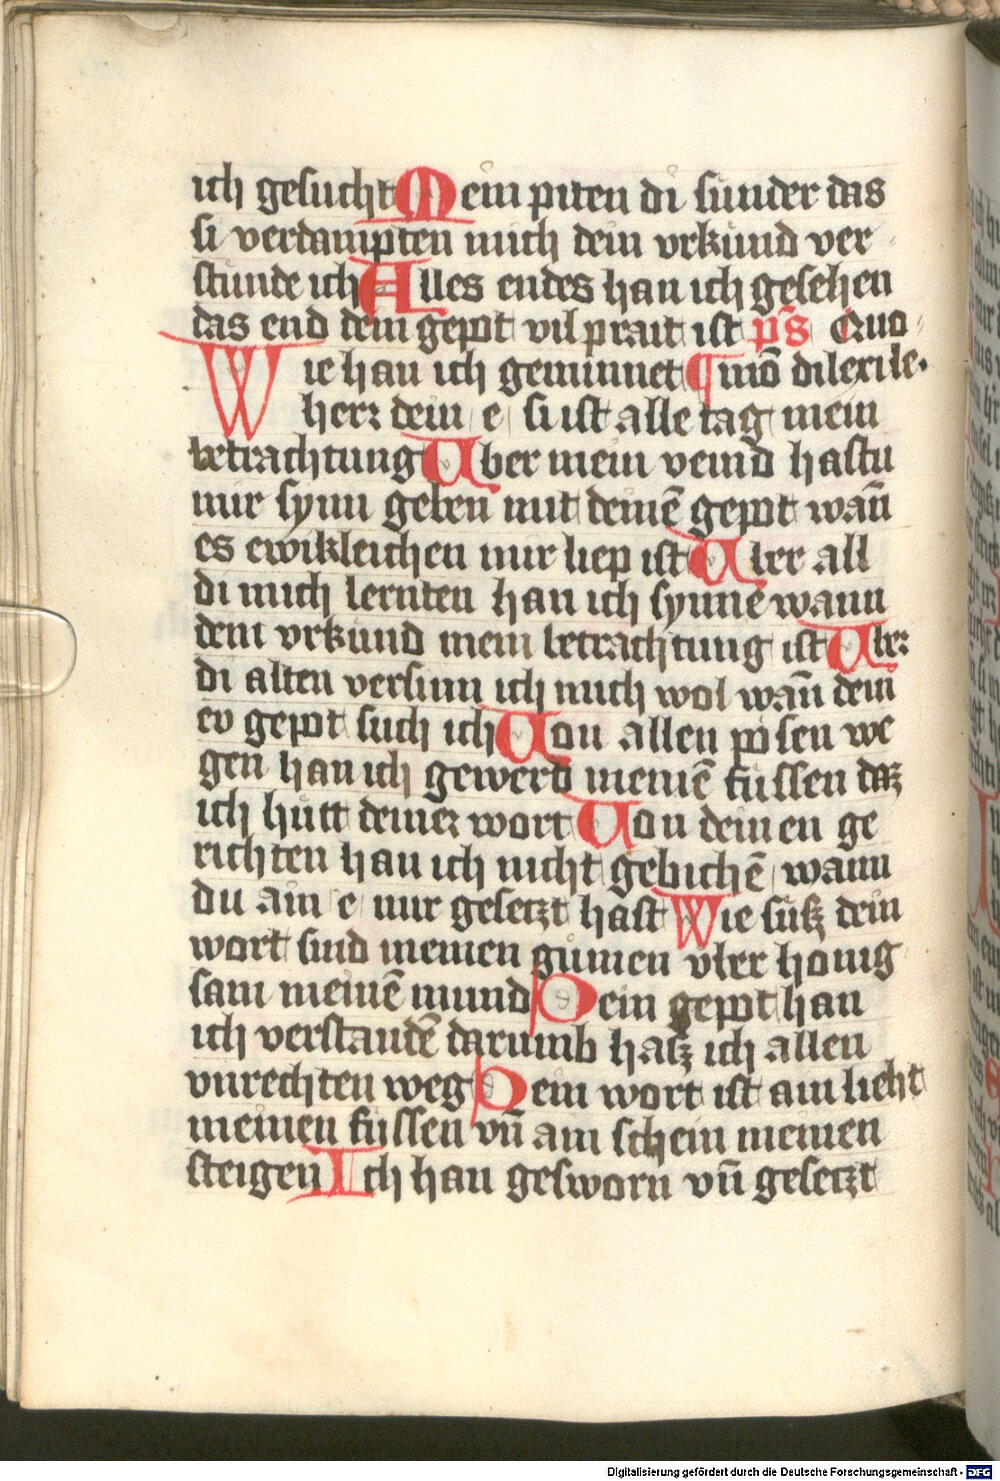 ich gesucht Mein piten di sunder das
si verdampten mich dein vrkund ver
stunde ich Alles endes han ich gesehen
das end dein gepot vil prait ist ps Quo
Wie han ich geminnet mō dilexi le.
herz dein e si ist alle tag mein
betrachtung Uber mein veind hastu
mir synn geben mit deinē gepot wañ
es ewikleichen mir liep ist Uber all
di mich lernten han ich synne wann
dein vrkund mein betrachtung ist Uber
di alten versinn ich mich wol wañ dein
ev gepot such ich Uon allen posen we
gen han ich gewerd meinē fussen daz
ich hutt deiner wort Uon deinen ge
richten han ich nicht gebichē wann
du ain e mir gesetzt hast Wie suß dein
wort sind meinen gumen vber honig
sam meinē mund Dein gepot han
ich verstandē darumb hasz ich allen
vnrechten weg Dein wort ist ain lieht
meinen fussen vñ ain schein meinen
steigen Ich han gesworn vñ gesetzt
Digitalisierung gefördert durch die Deutsche Forschungsgemeinschaft - DFG